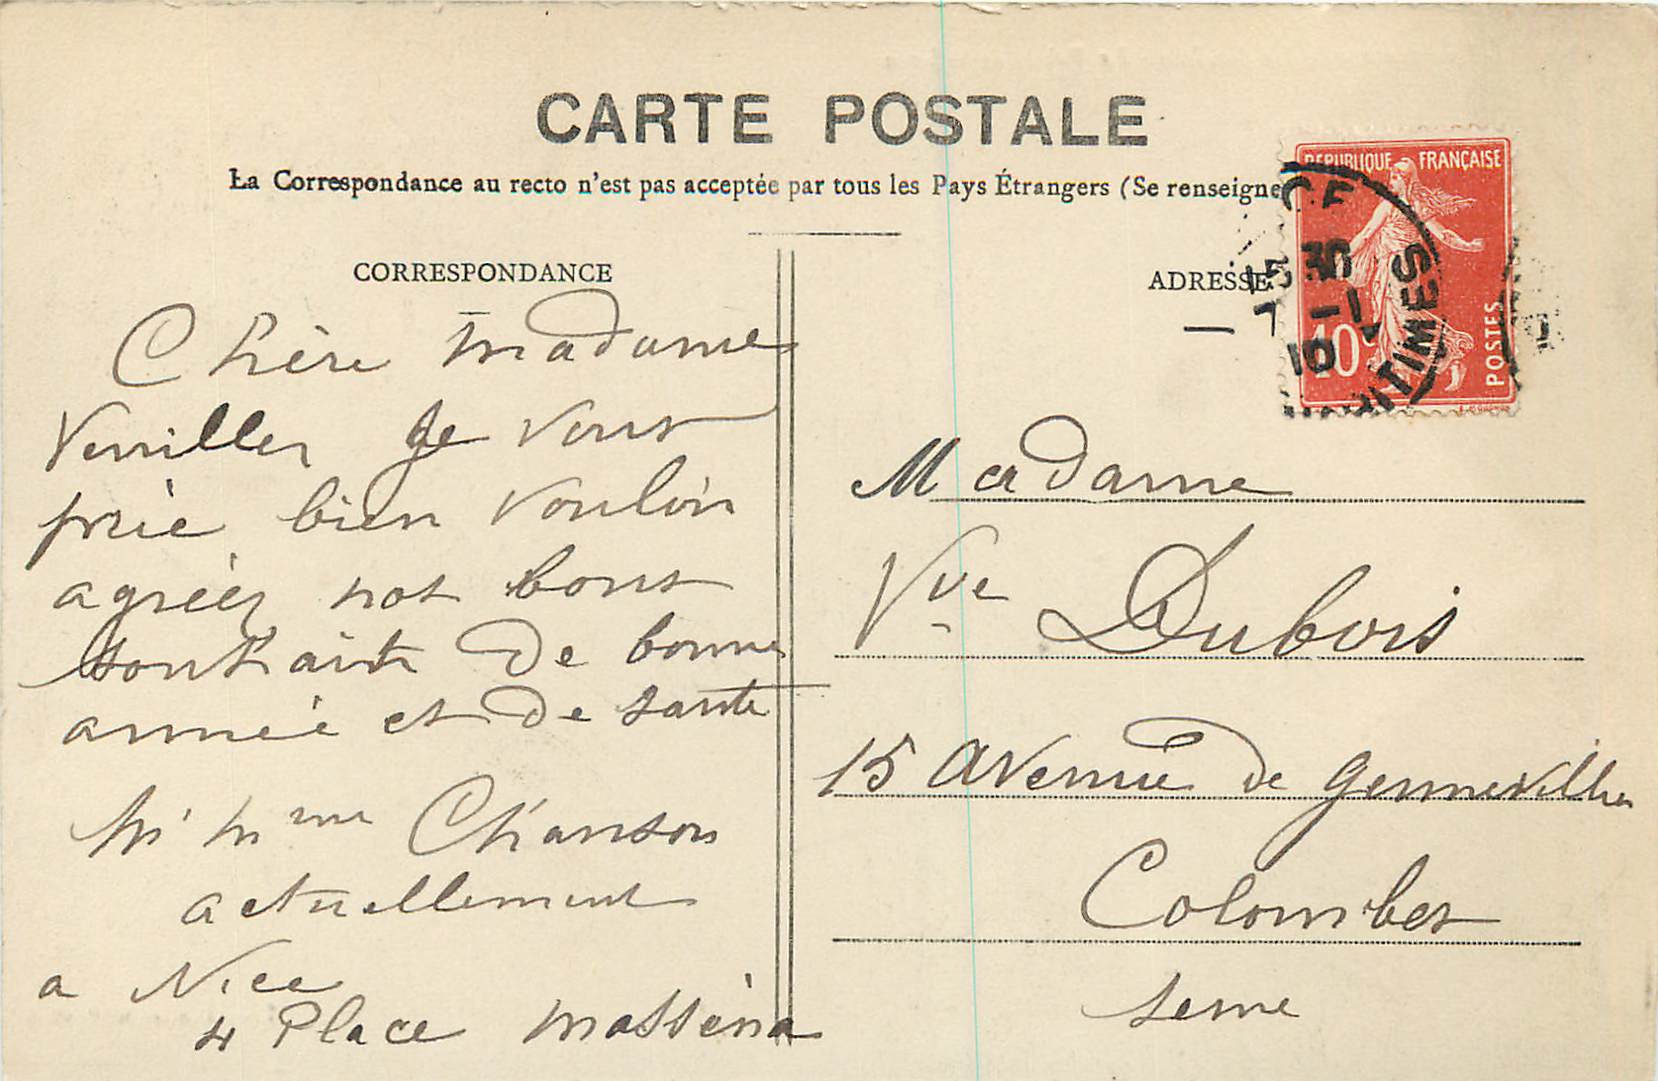 CARTE POSTALE
La Correspondance au recto n'est pas acceptée par tous les Pays Étrangers (Se renseigne
CORRESPONDANCE
Chère madame
Veuiller je vous
prie bien vouloir
agréer nos bons
souhaits de bonne
année et de santé
M Mme Chanson
actuellement
a Nice
4 Place Masséna
ADRESSE
REPUBLIQUE FRANÇAISE
10c
POSTES
CE
15 35
7 -1
10
MARITIMES
Madame
Vve Dubois
15 avenue de Gennevilliers
Colombes
Seine